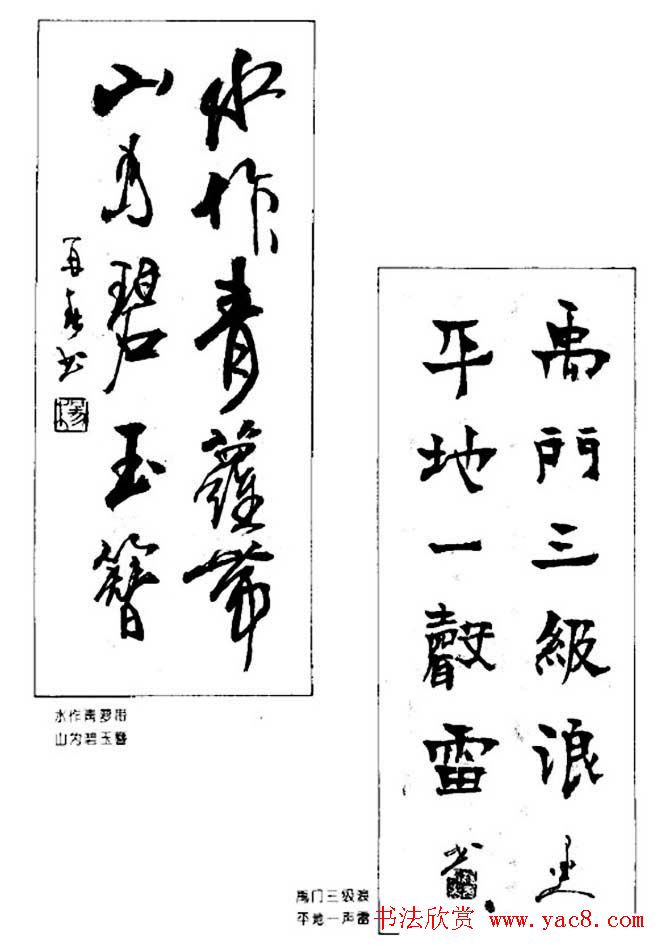 水作青蘿帶
山為碧玉簪
水作青萝带
山为碧玉簪
禹門三級浪
平地一聲雷
禹门三级浪
平地一声雷
书法欣赏 www.yac8.com